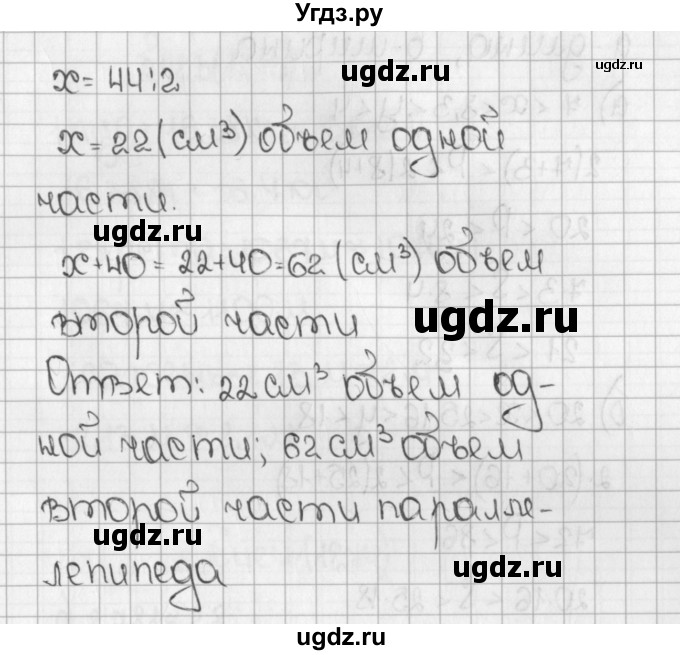 Угдз.ру
ugdz.ru
ugdz.ru
x = 44:2
x = 22 (см³) объем одной
части.
ugdz.ru
x+40 = 22+40=62 (см³) объем
второй части
ugdz.ru
Ответ: 22 см³ объем од-
ной части; 62 см³ объем
второй части паралле-
ugdz.ru
лепипеда
ugdz.ru
ugdz.ru